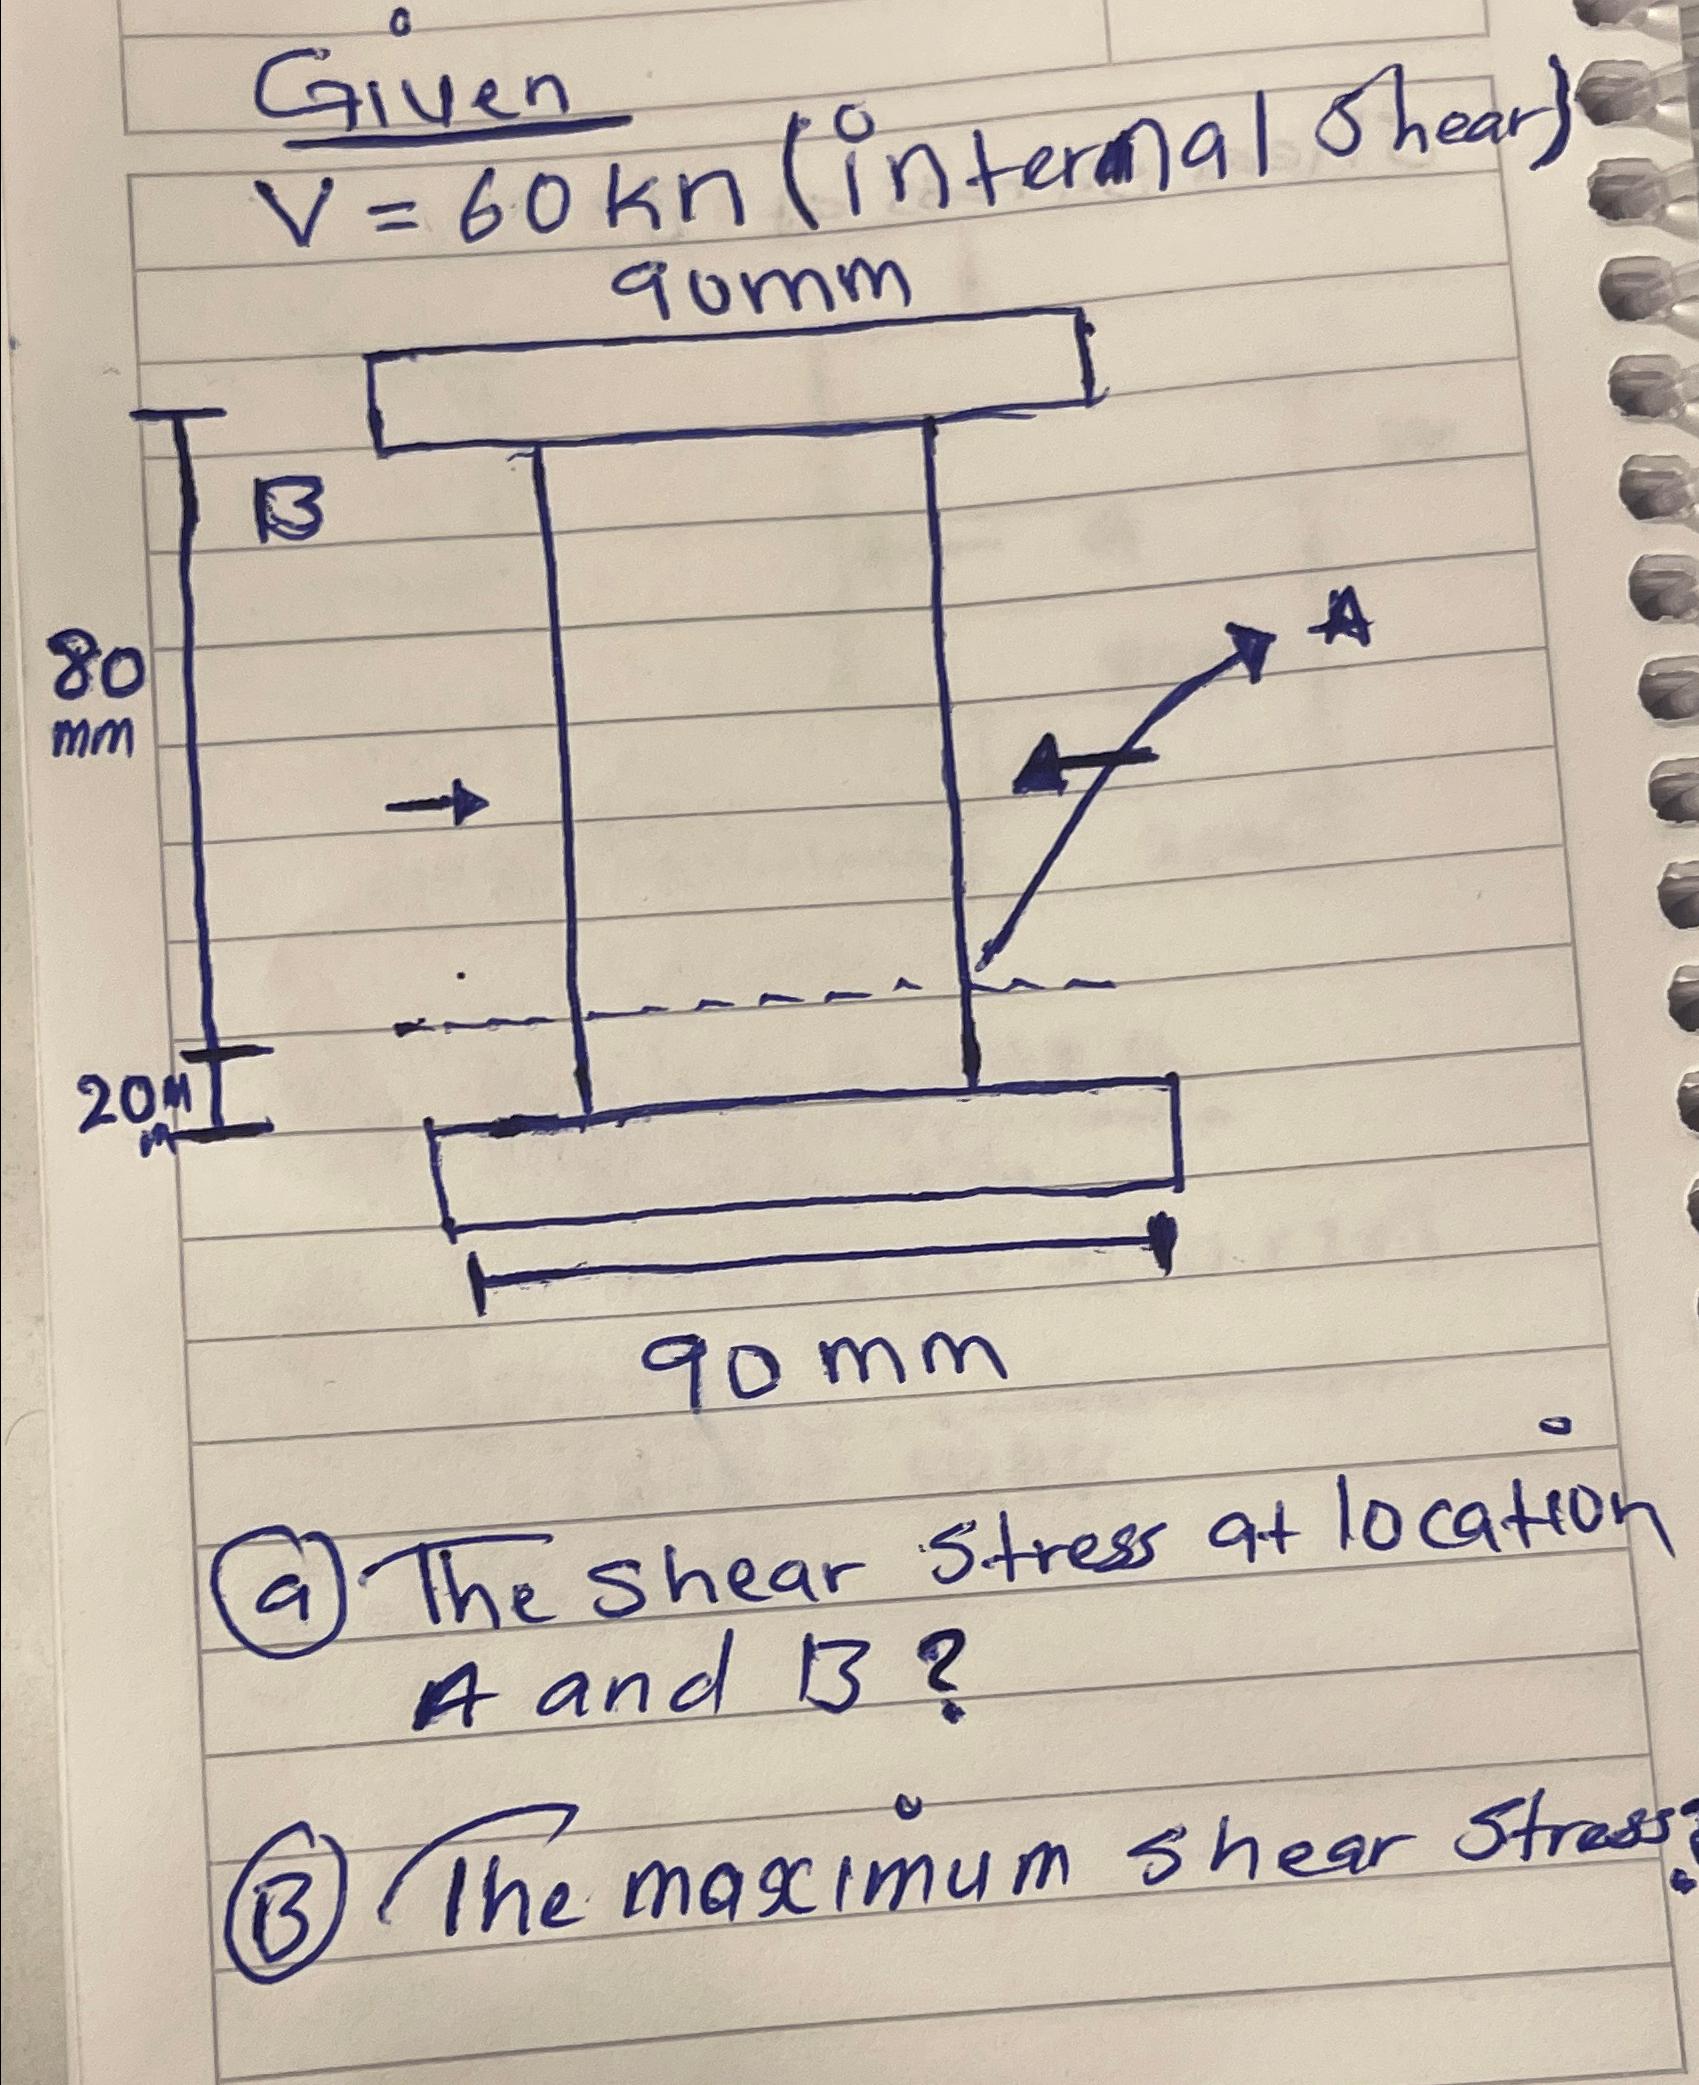 Given
V = 60 kn (internal shear)
90mm
B
80
mm
A
20m
m
90 mm
a The shear stress at location
A and B ?
B The maximum shear stress?